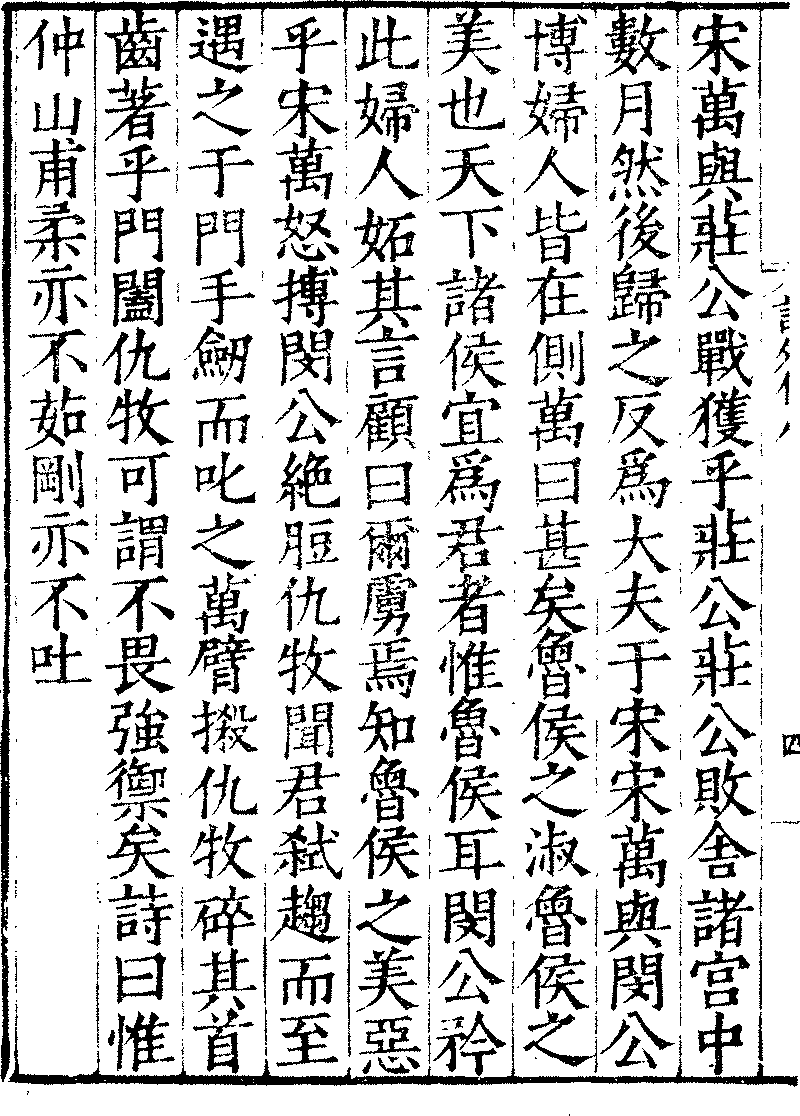 宋萬與莊公戰獲乎莊公莊公敗舍諸宫中
數月然後歸之反爲大夫于宋宋萬與閔公
博婦人皆在側萬曰甚矣魯侯之淑魯侯之
美也天下諸侯宜爲君者惟魯侯耳閔公矜
此婦人妬其言顧曰爾虜焉知魯侯之美惡
乎宋萬怒搏閔公絶脰仇牧聞君弑趨而至
遇之于門手劒而叱之萬臂摋仇牧碎其首
齒著乎門闔仇牧可謂不畏強禦矣詩曰惟
仲山甫柔亦不茹剛亦不吐
四